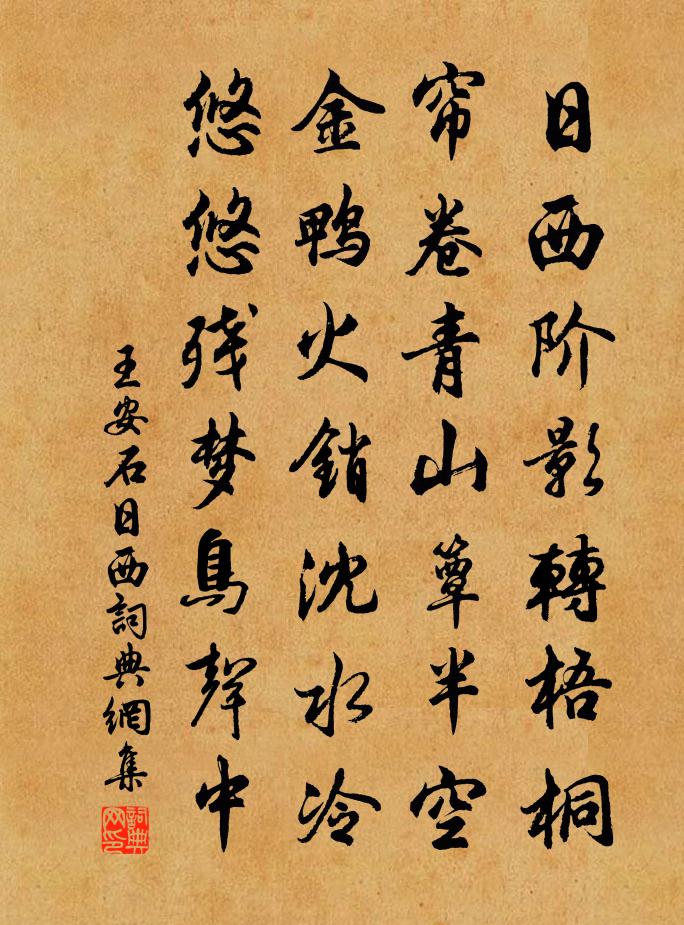 日西阶影轉梧桐
帘卷青山簟半空
金鸭火銷沈水冷
悠悠残梦鳥聲中
王安石日西詞典網集
詞典网印